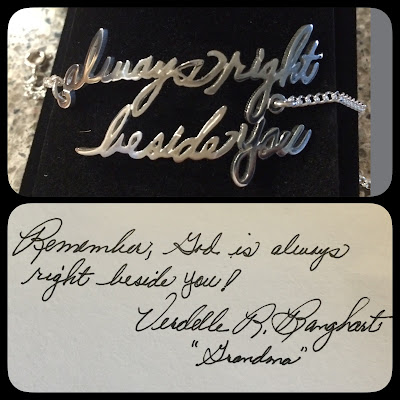 always right
beside you
Remember, God is always
right beside you!
Verdelle R. Banghart
"Grandma"